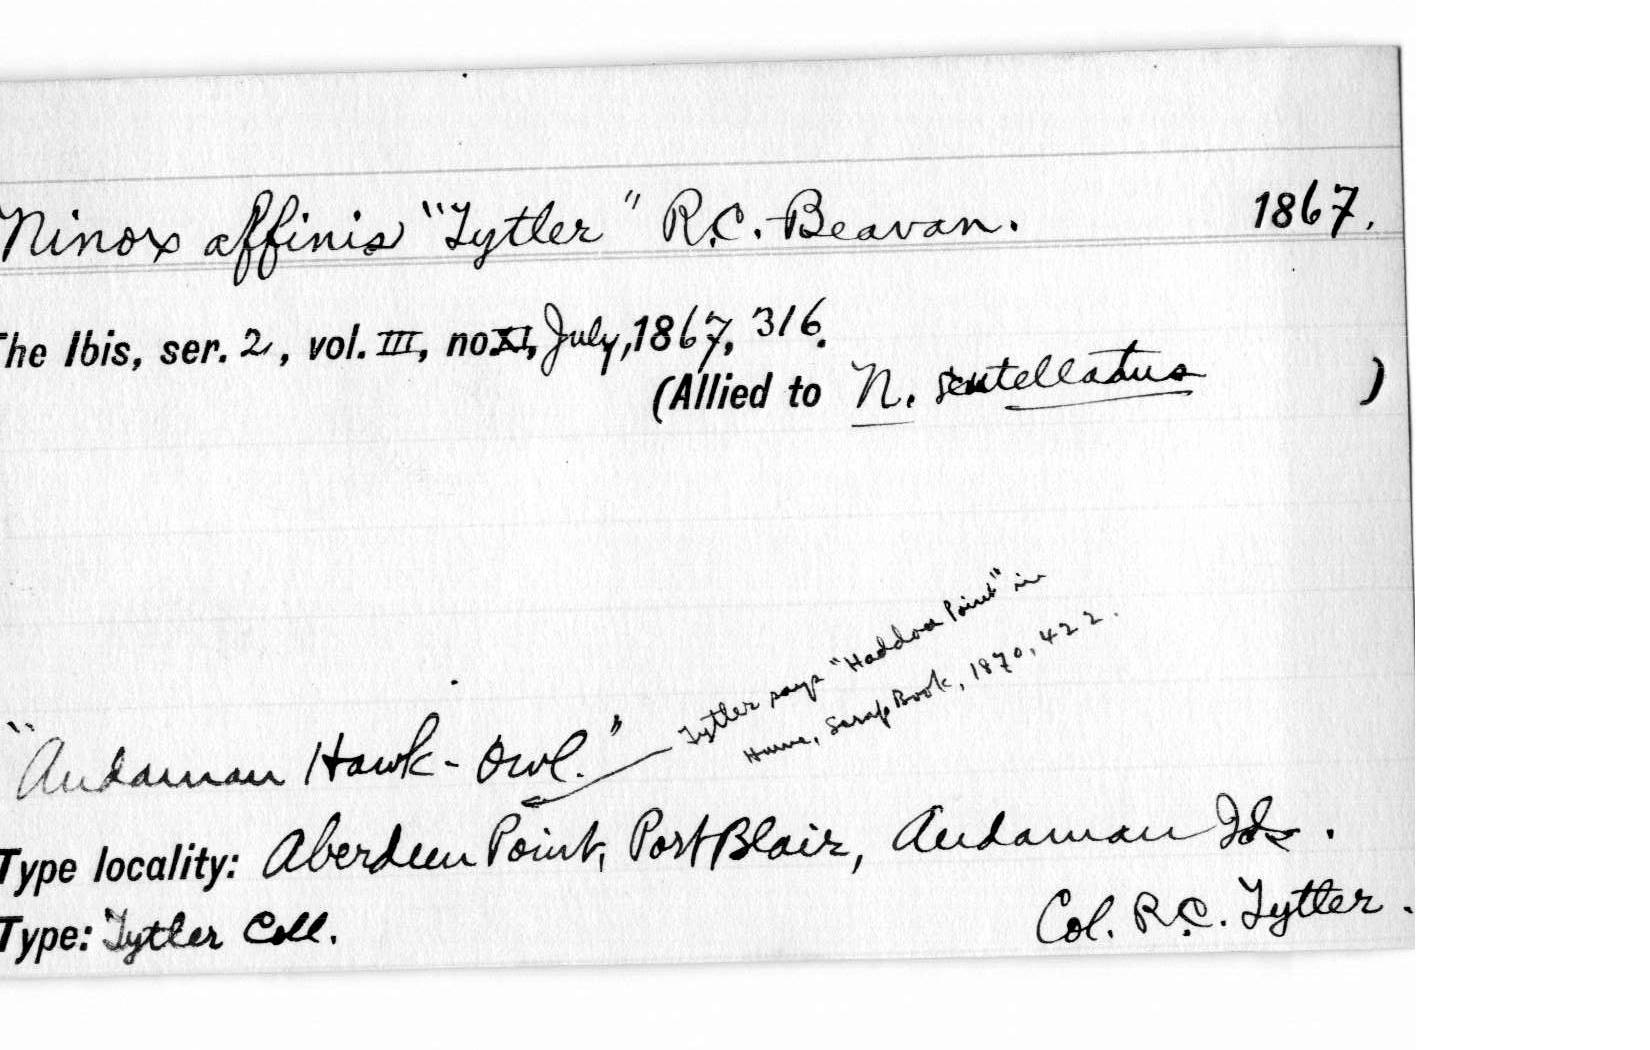 Ninox affinis "Tytler" R.C. Beavan. 1867.
The Ibis, ser. 2, vol. III, no. XI, July, 1867, 316.
(Allied to N. scutellatus )
Tytler says "Haddoa Point" in
Hume, Scrap Book, 1870, 422.
"Andaman Hawk-Owl."
Type locality: Aberdeen Point, Port Blair, Andaman Ids.
Type: Tytler Coll. Col. R.C. Tytler.